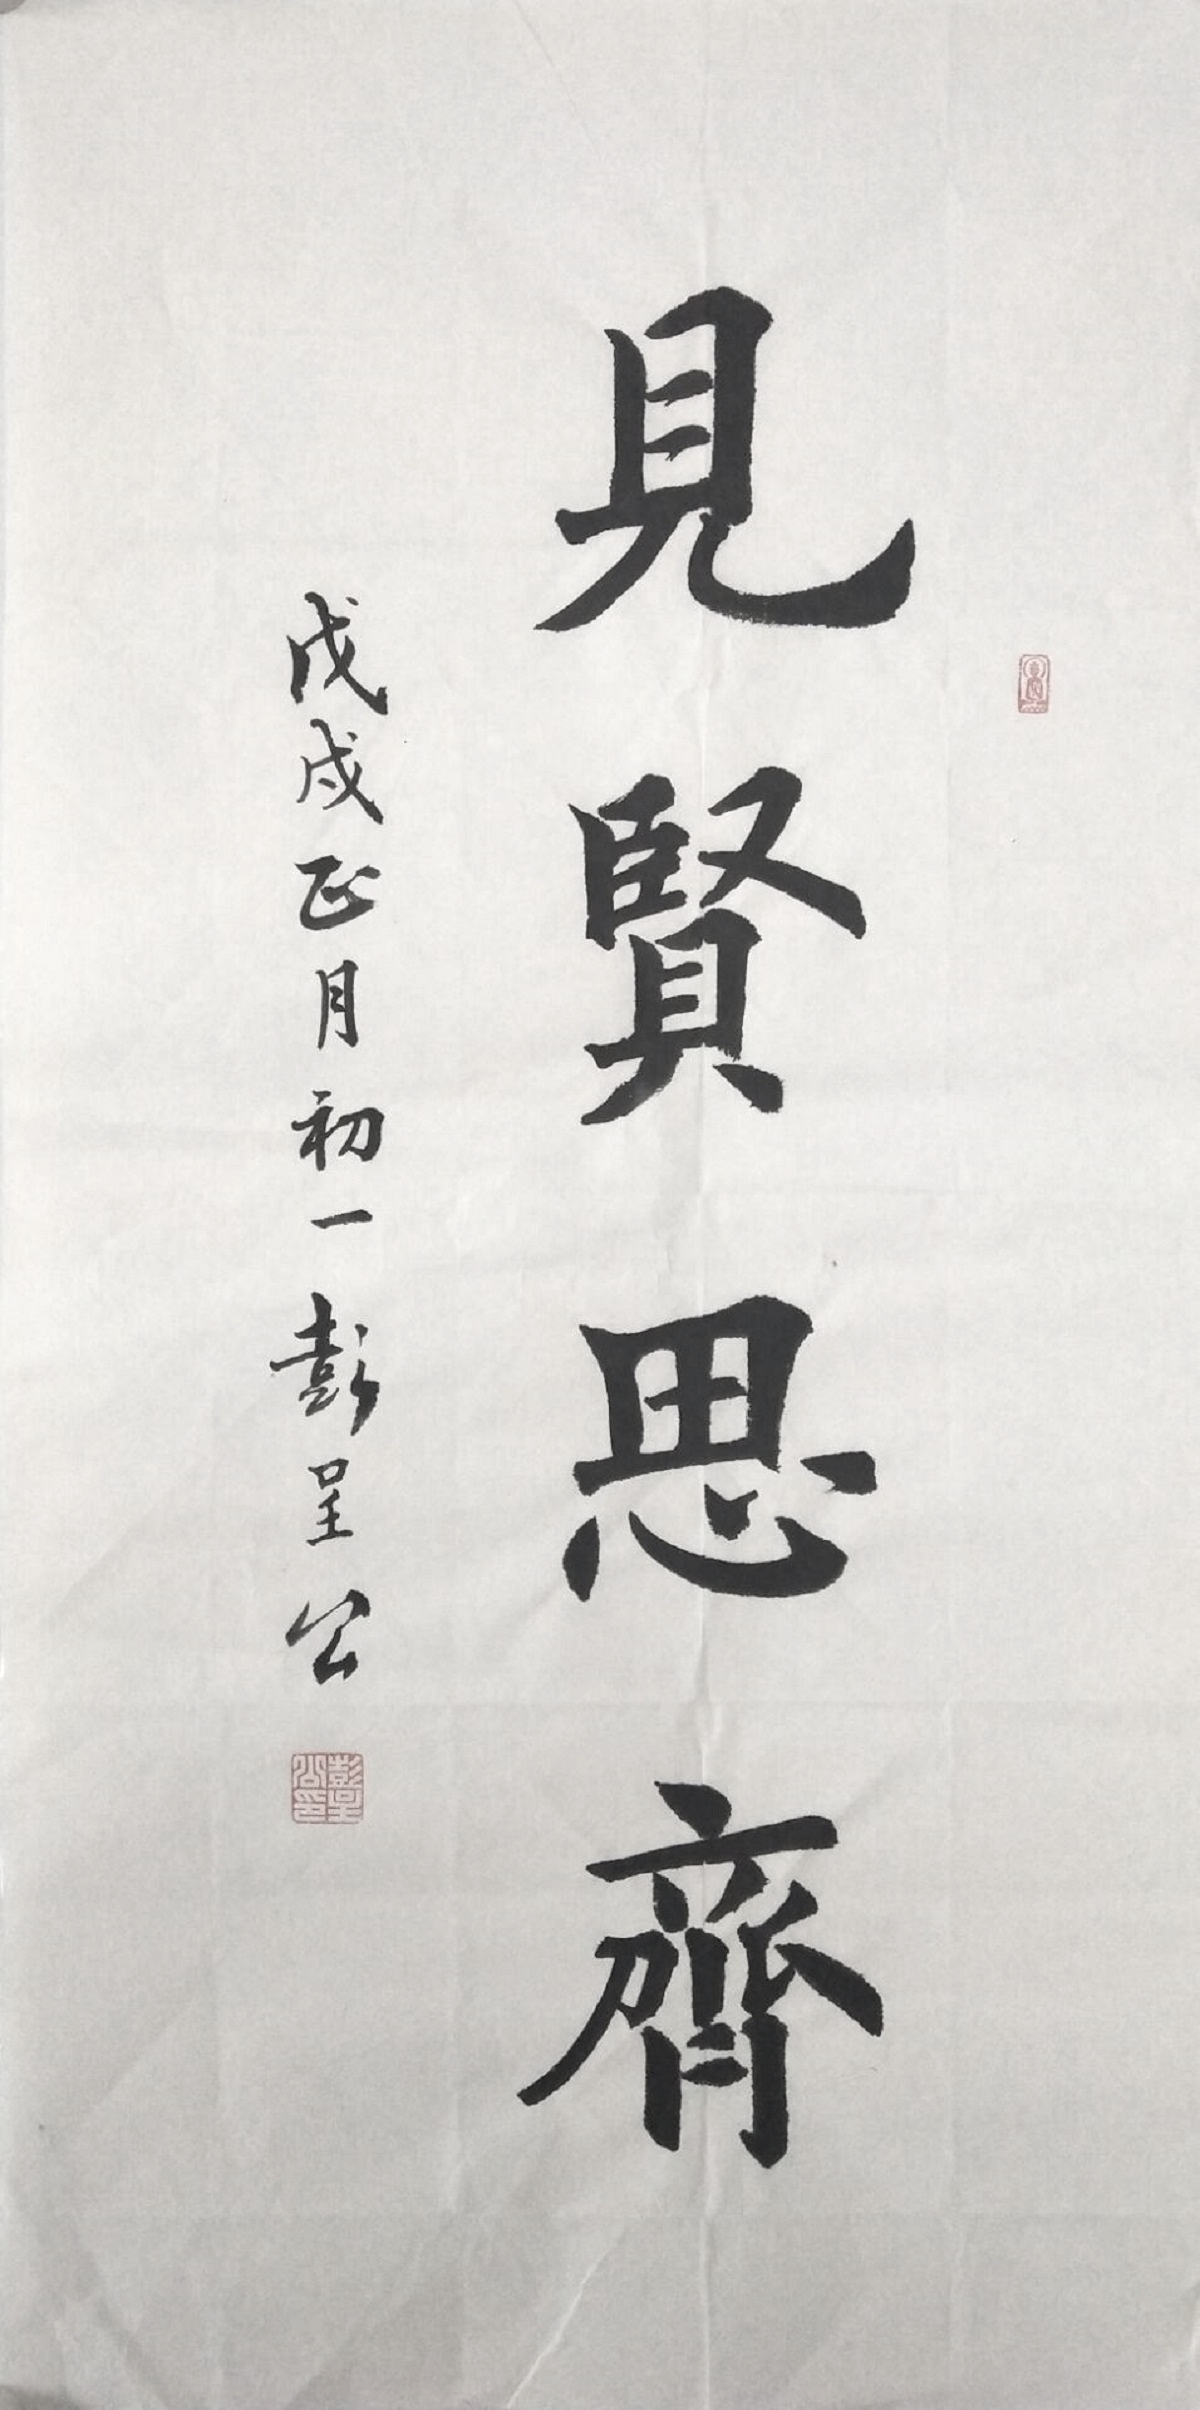 見賢思齊
戊戌正月初一彭呈公
彭呈公印